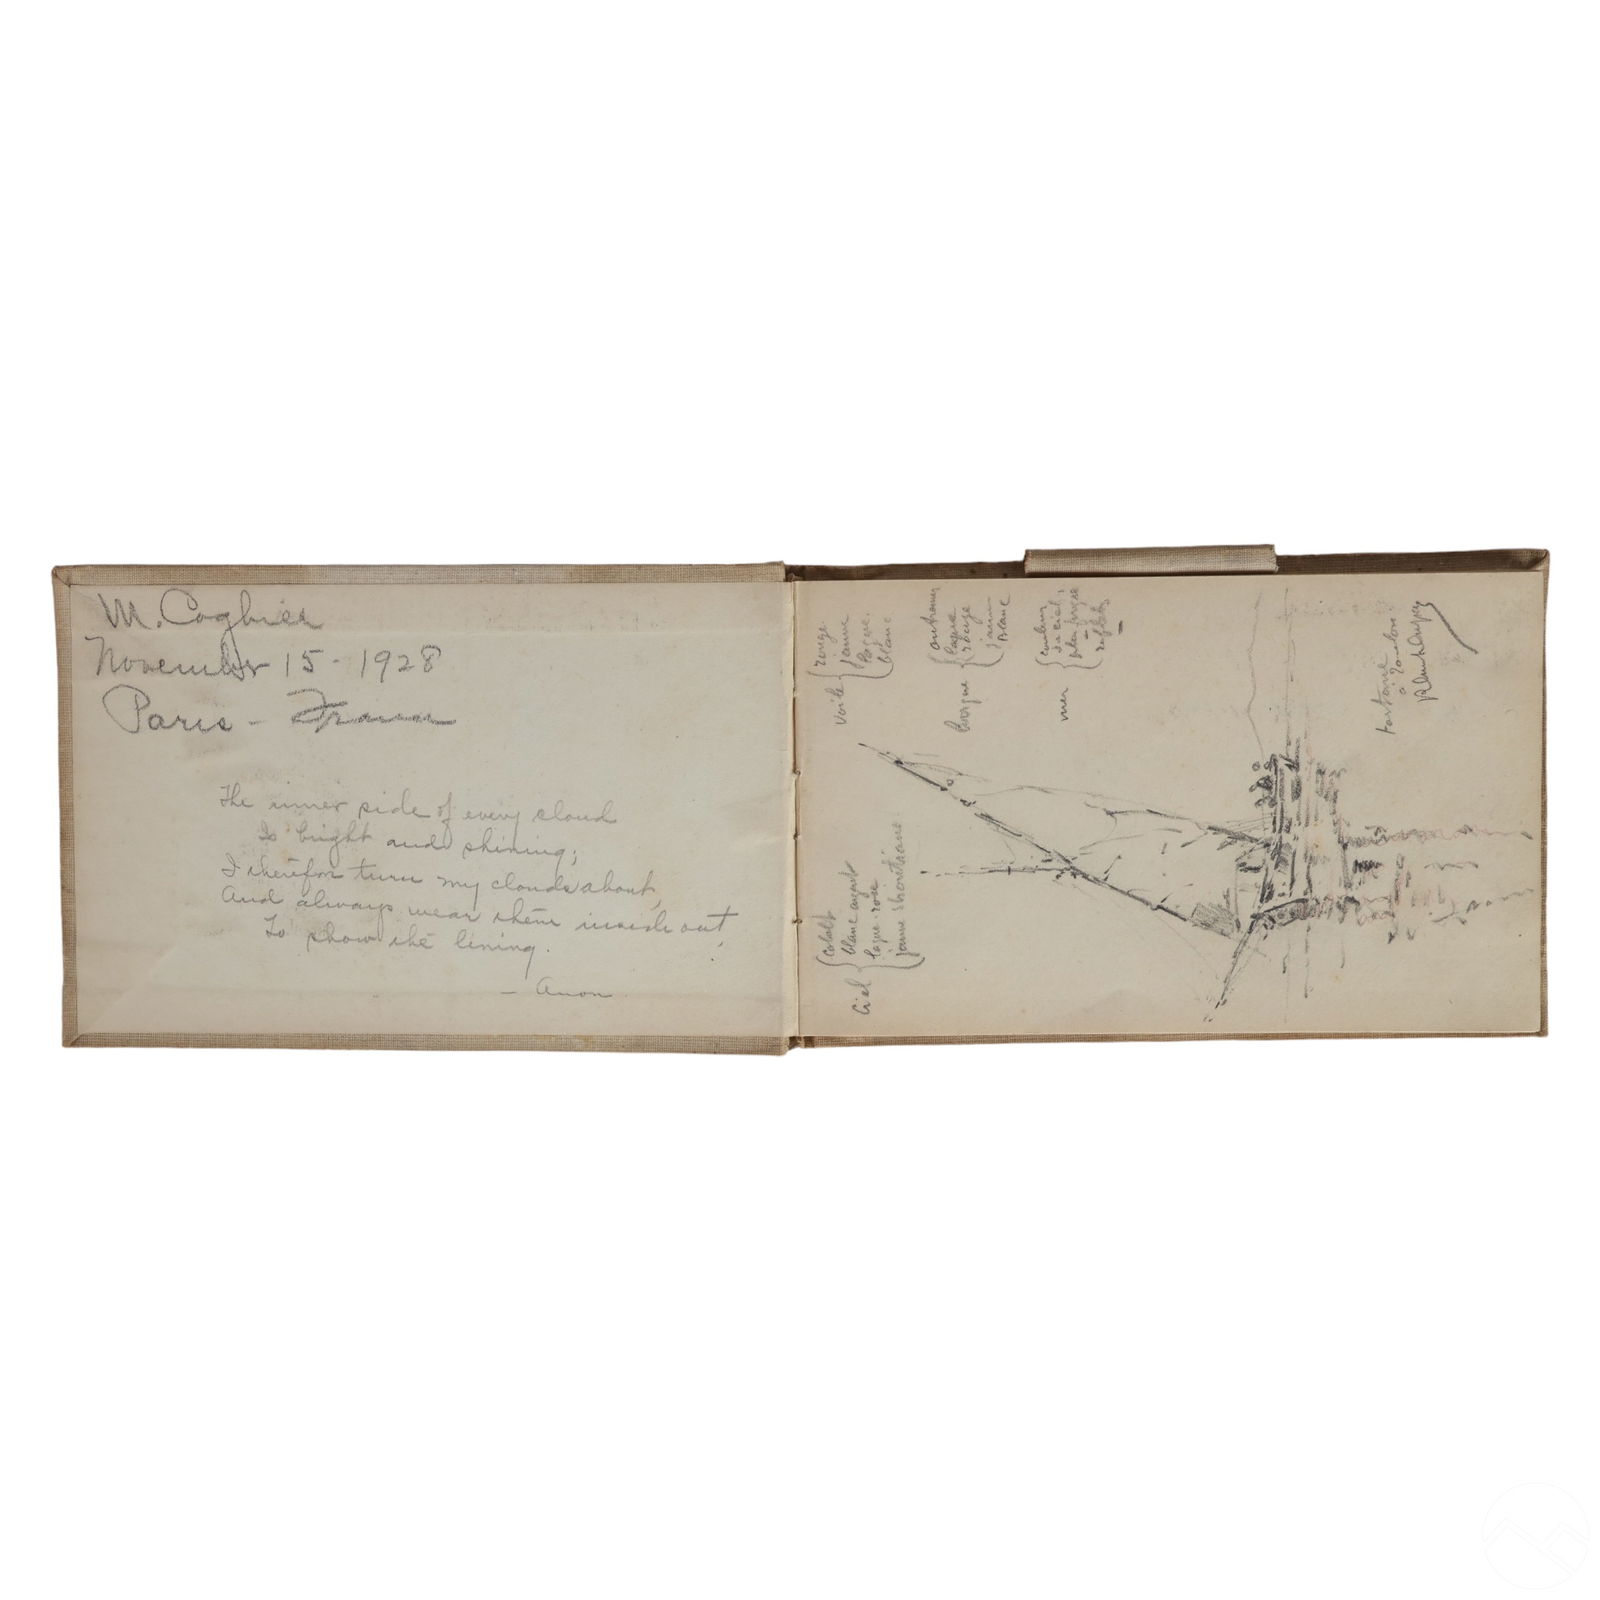 M. Coghier
November 15 - 1928
Paris - France
The inner side of every cloud
Is bright and shining;
I therefor turn my clouds about,
And always wear them inside out,
To show the lining.
- Anon
Ciel { cobalt
blanc argent
laque rose
jaune
Voile { rouge
jaune
laque
blanc
{ outremer
laque
rouge
jaune
Blanc
mer { couleur
du ciel,
plus
reflets
tartane
à Toulon